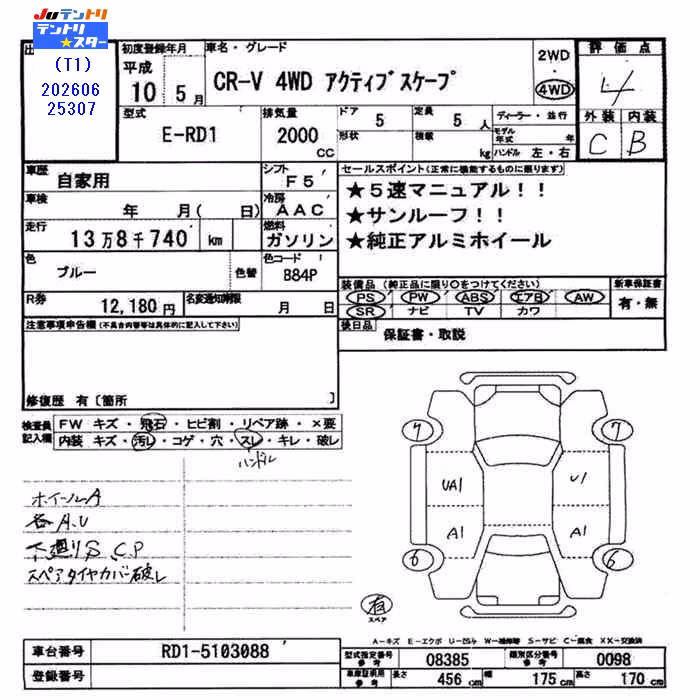 JUテントリ
テントリ
★スター
(T1)
202606
25307
出
初度登録年月
平成
10 5月
車名・グレード
CR-V 4WD アクティブスケープ
2WD
・
4WD
評価点
4
外装 内装
C B
型式
E-RD1
排気量
2000
cc
ドア
5
定員
5 人
形状
積載
kg
ディーラー・並行
モデル年式 年
ハンドル 左・右
車歴
自家用
シフト
F5
車検
年 月( 日)
冷房
AAC
走行
13万8千740 km
燃料
ガソリン
色
ブルー
色替
色コード
B84P
R券
12,180円
名変通知期限
月 日
セールスポイント(正常に機能するものに限ります)
★5速マニュアル!!
★サンルーフ!!
★純正アルミホイール
装備品 (純正品に限り○をつけてください)
PS PW ABS エアB AW
SR ナビ TV カワ
新車保証書
有・無
後日品
保証書・取説
注意事項申告欄(不具合内容等は具体的に記入して下さい)
修復歴 有〔箇所 〕
検査員
記入欄
FW キズ・飛石・ヒビ割・リペア跡・×要
内装 キズ・汚れ・コゲ・穴・スレ・キレ・破レ
ハンドル
ホイールA
各A.U
下廻りS C.P
スペアタイヤカバー破レ
7 7
UA1 U1
A1 A1
6 6
有
スペア
A-キズ E-エクボ U-凹み W-補修跡 S-サビ C-腐食 XX-交換済
車台番号
RD1-5103088
登録番号
型式指定番号
参考
08385
類別区分番号
参考
0098
車庫証明用
参考
長さ
456 cm
幅
175 cm
高さ
170 cm